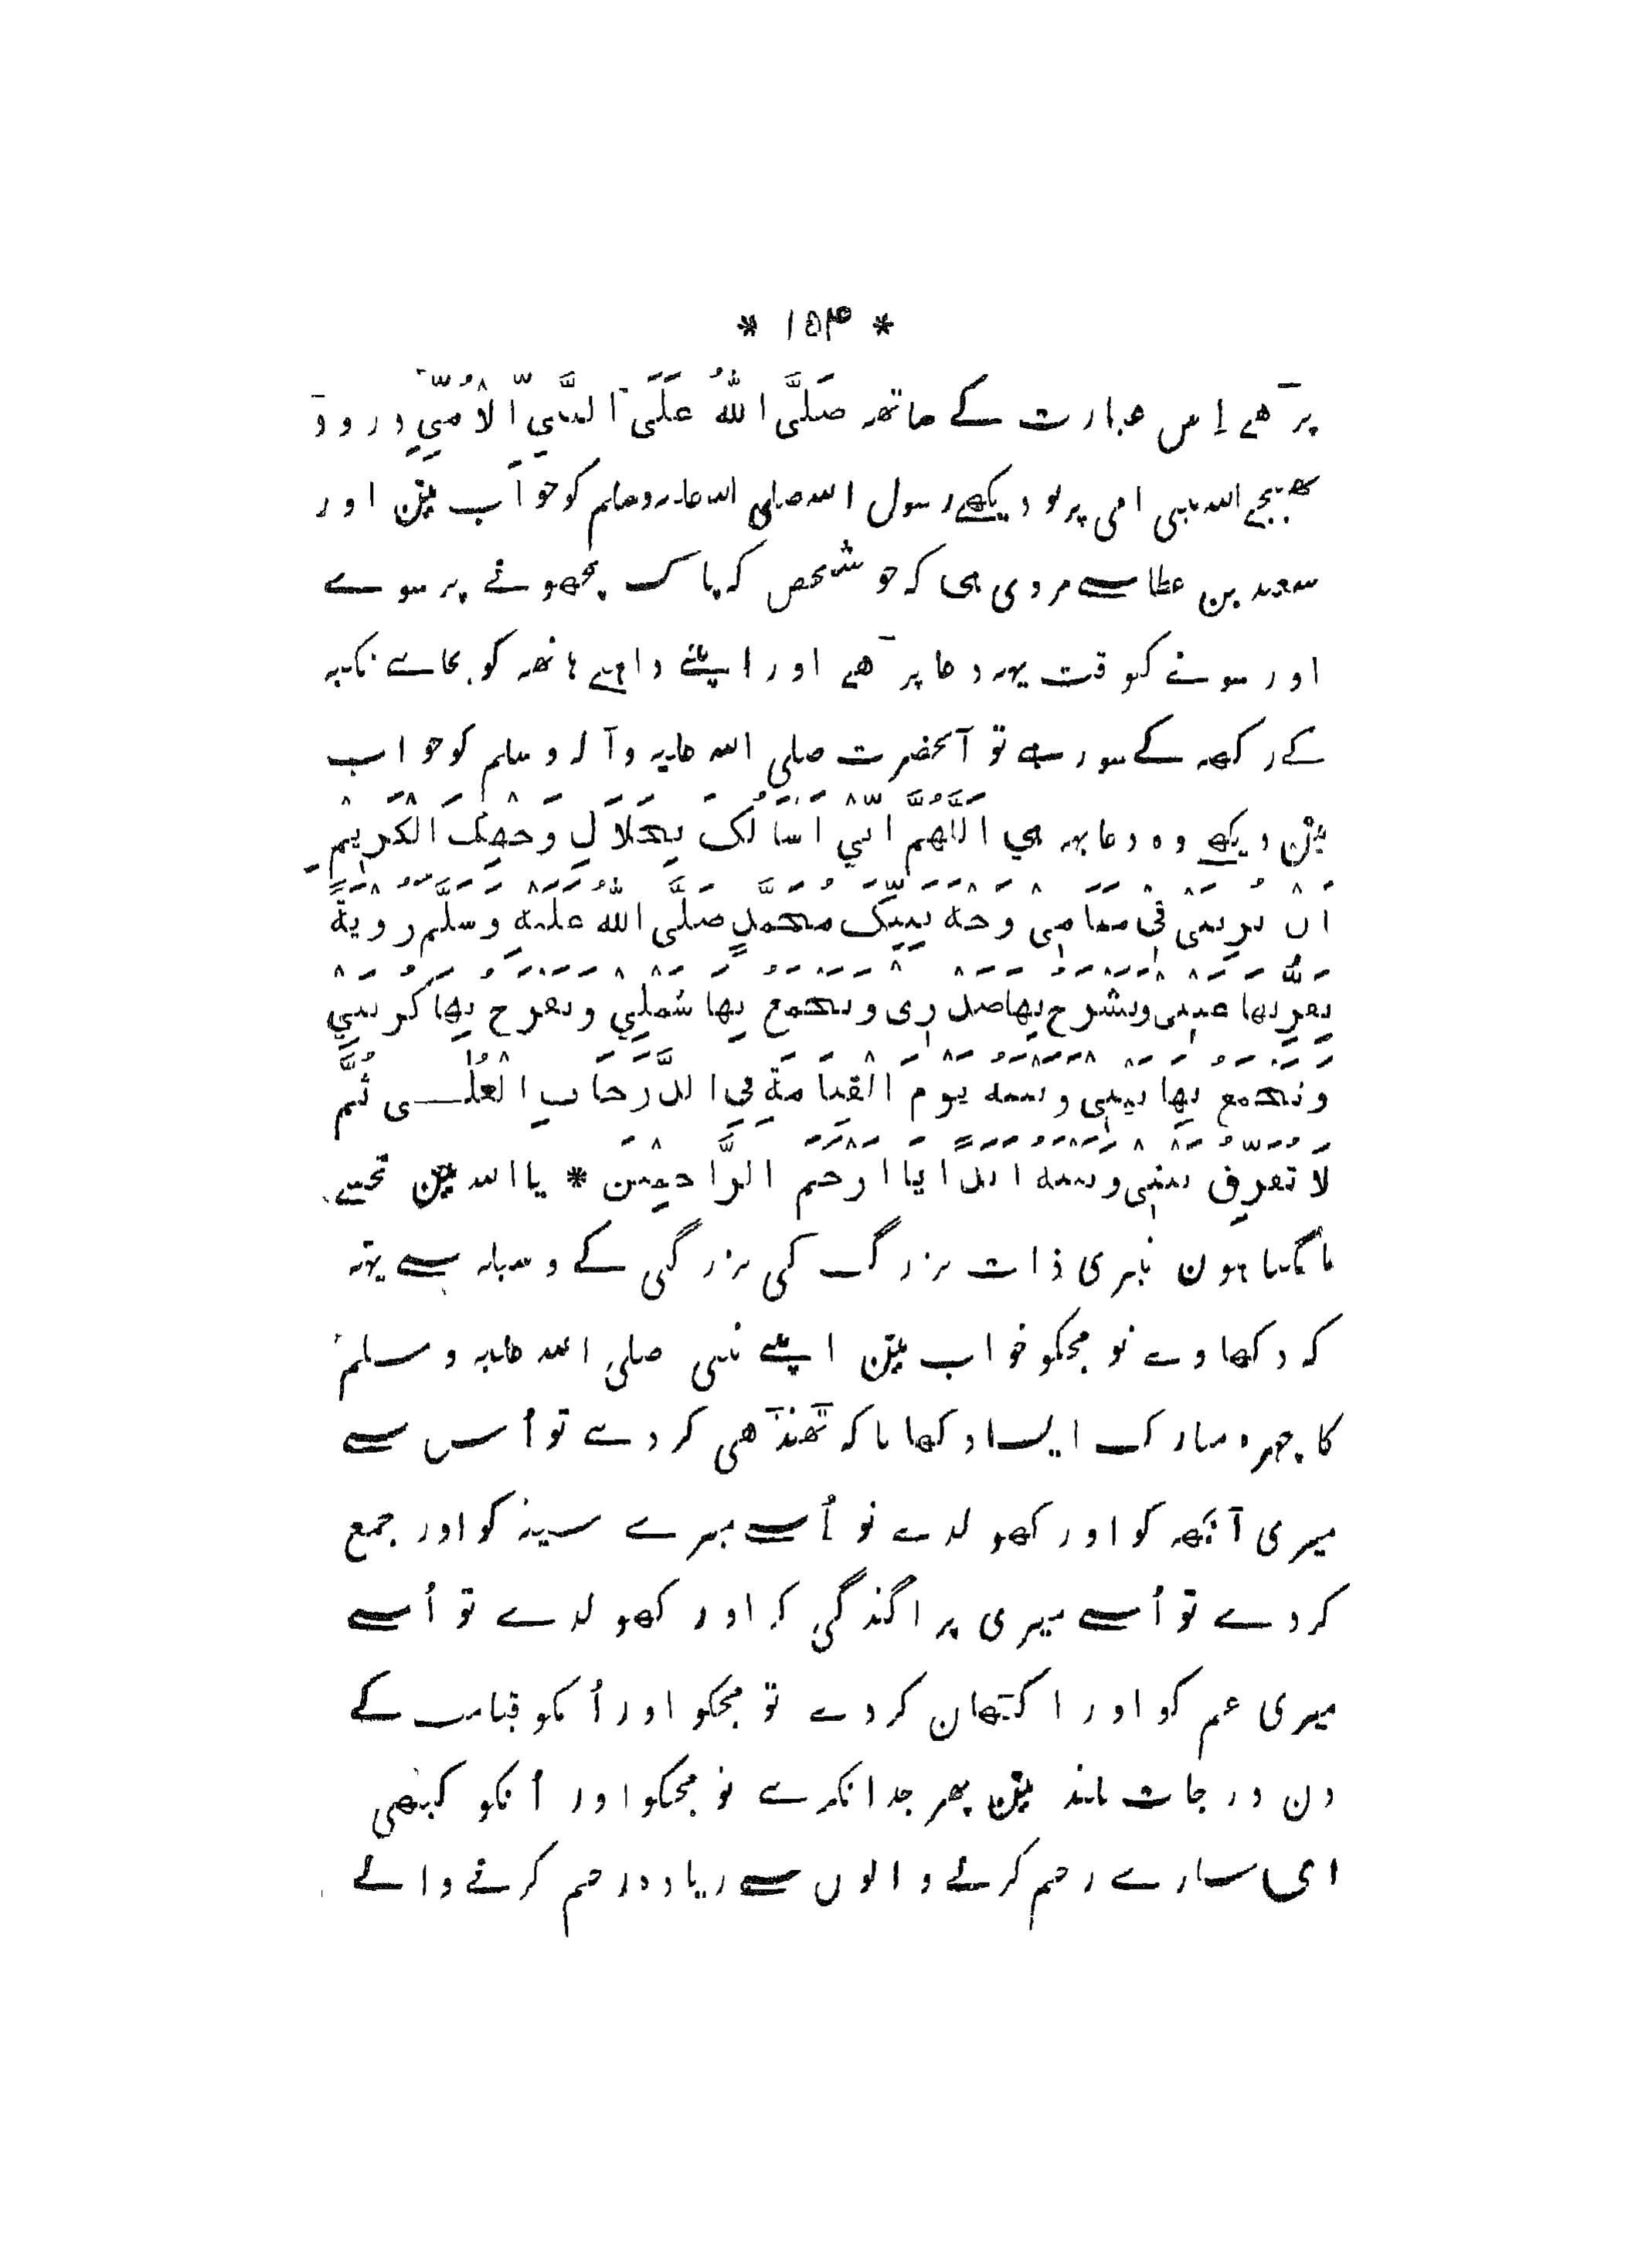 * ۱۵۴ *
پرھے اِس عبارت کے ساتھ صَلَّی اللّٰهُ عَلَی النَّبِيِّ الْاُمِّيِّ درود
بھیجے اللہ نبی امی پر تو دیکھے رسول اللہ صلی اللہ علیہ وسلم کو خواب میں اور
سعید بن عطا سے مروی ہی کہ جو شخص کہ پاک بچھونے پر سوے
اور سونے کو قت یہہ دعا پرھے اور اپنے داہنے ہاتھہ کو بجاے تکیہ
کے رکھہ کے سو رہے تو آنحضرت صلی اللہ علیہ وآلہ وسلم کو خواب
میں دیکھے وہ دعا یہہ ہي اَللّٰهُمَّ اِنِّي اَسْاَلُکَ بِجَلَالِ وَجْهِکَ الْکَرِیْمِ
اَنْ تُرِیَنِی فِی مَنَامِی وَجْهَ نَبِیِّکَ مُحَمَّدٍ صَلَّی اللّٰهُ عَلَیْهِ وَسَلَّمَ رُوْیَةً
تَقَرُّ بِهَا عَیْنِی وَتَشْرَحُ بِهَا صَدْرِی وَتَجْمَعُ بِهَا شَمْلِي وَتُفَرِّحُ بِهَا کُرْبَتِي
وَتَجْمَعُ بِهَا بَیْنِی وَبَیْنَهُ یَوْمَ الْقِیَامَةِ فِي الدَّرَجَاتِ الْعُلٰی ثُمَّ
لَا تُفَرِّقْ بَیْنِی وَبَیْنَهُ اَبَدًا یَا اَرْحَمَ الرَّاحِمِیْنَ * یا اللہ میں تجسے
مانگتا ہون تیری ذات بزرگ کی بزرگی کے وسیلہ سے یہہ
کہ دکھاوے تو مجکو خواب میں اپنے نبی صلی اللہ علیہ وسلم
کا چہرہ مبارک ایسا دکھانا کہ تھندھی کردے تو اُس سے
میری آنکھہ کو اور کھولدے تو اُسے میرے سینہ کو اور جمع
کردے تو اُسے میری پراگندگی کو اور کھولدے تو اُسے
میری غم کو اور اکتھان کردے تو مجکو اور اُنکو قیامت کے
دن درجات بلند میں پھر جدا نکرے تو مجکو اور اُنکو کبھی
ای سارے رحم کرنے والوں سے زیادہ رحم کرنے والے